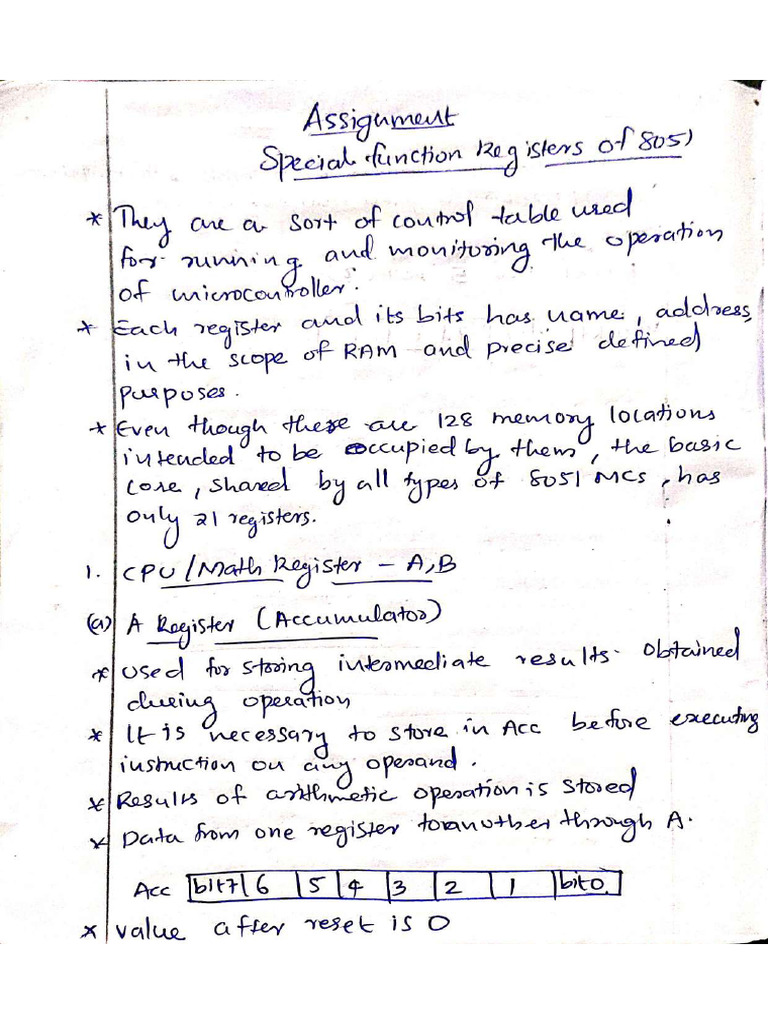 Assignment
Special function Registers of 8051
* They are a sort of control table used
for running and monitoring the operation
of microcontroller.
* Each register and its bits has name, address,
in the scope of RAM and precise defined
purposes.
* Even though there are 128 memory locations
intended to be occupied by them, the basic
core, shared by all types of 8051 MCs, has
only 21 registers.
1. CPU/Math Register - A,B
(a) A Register (Accumulator)
* Used for storing intermediate results obtained
during operation
* It is necessary to store in Acc before executing
instruction on any operand.
* Results of arithmetic operation is stored
* Data from one register to another through A.
Acc bit7 6 5 4 3 2 1 bit0
* value after reset is 0